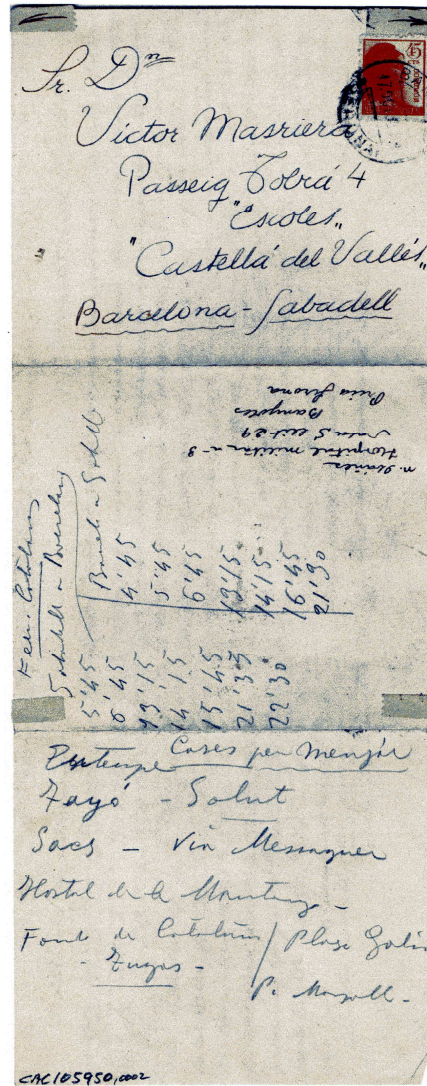 Sr. Dn
Victor Masriera
Passeig Tolrá 4
"Escoles"
"Castellá del Vallés"
Barcelona - Sabadell
45
Hospital militar nº 3
Sala 5 llit 29
Banyoles
Gerona
Ferr. Catalans
Sabadell a Barcelona
5'45
13'15
14'15
15'45
22'30
Barcel. a Sabadell
4'45
5'45
9'45
13'15
14'15
19'45
Cases per menjar
Fayó - Salut
Sacs - Via Messaguer
Hostal de la Muntanya -
Fonda de Cataluña / Plaza Galí
P. Maragall -
CAC105950,0002